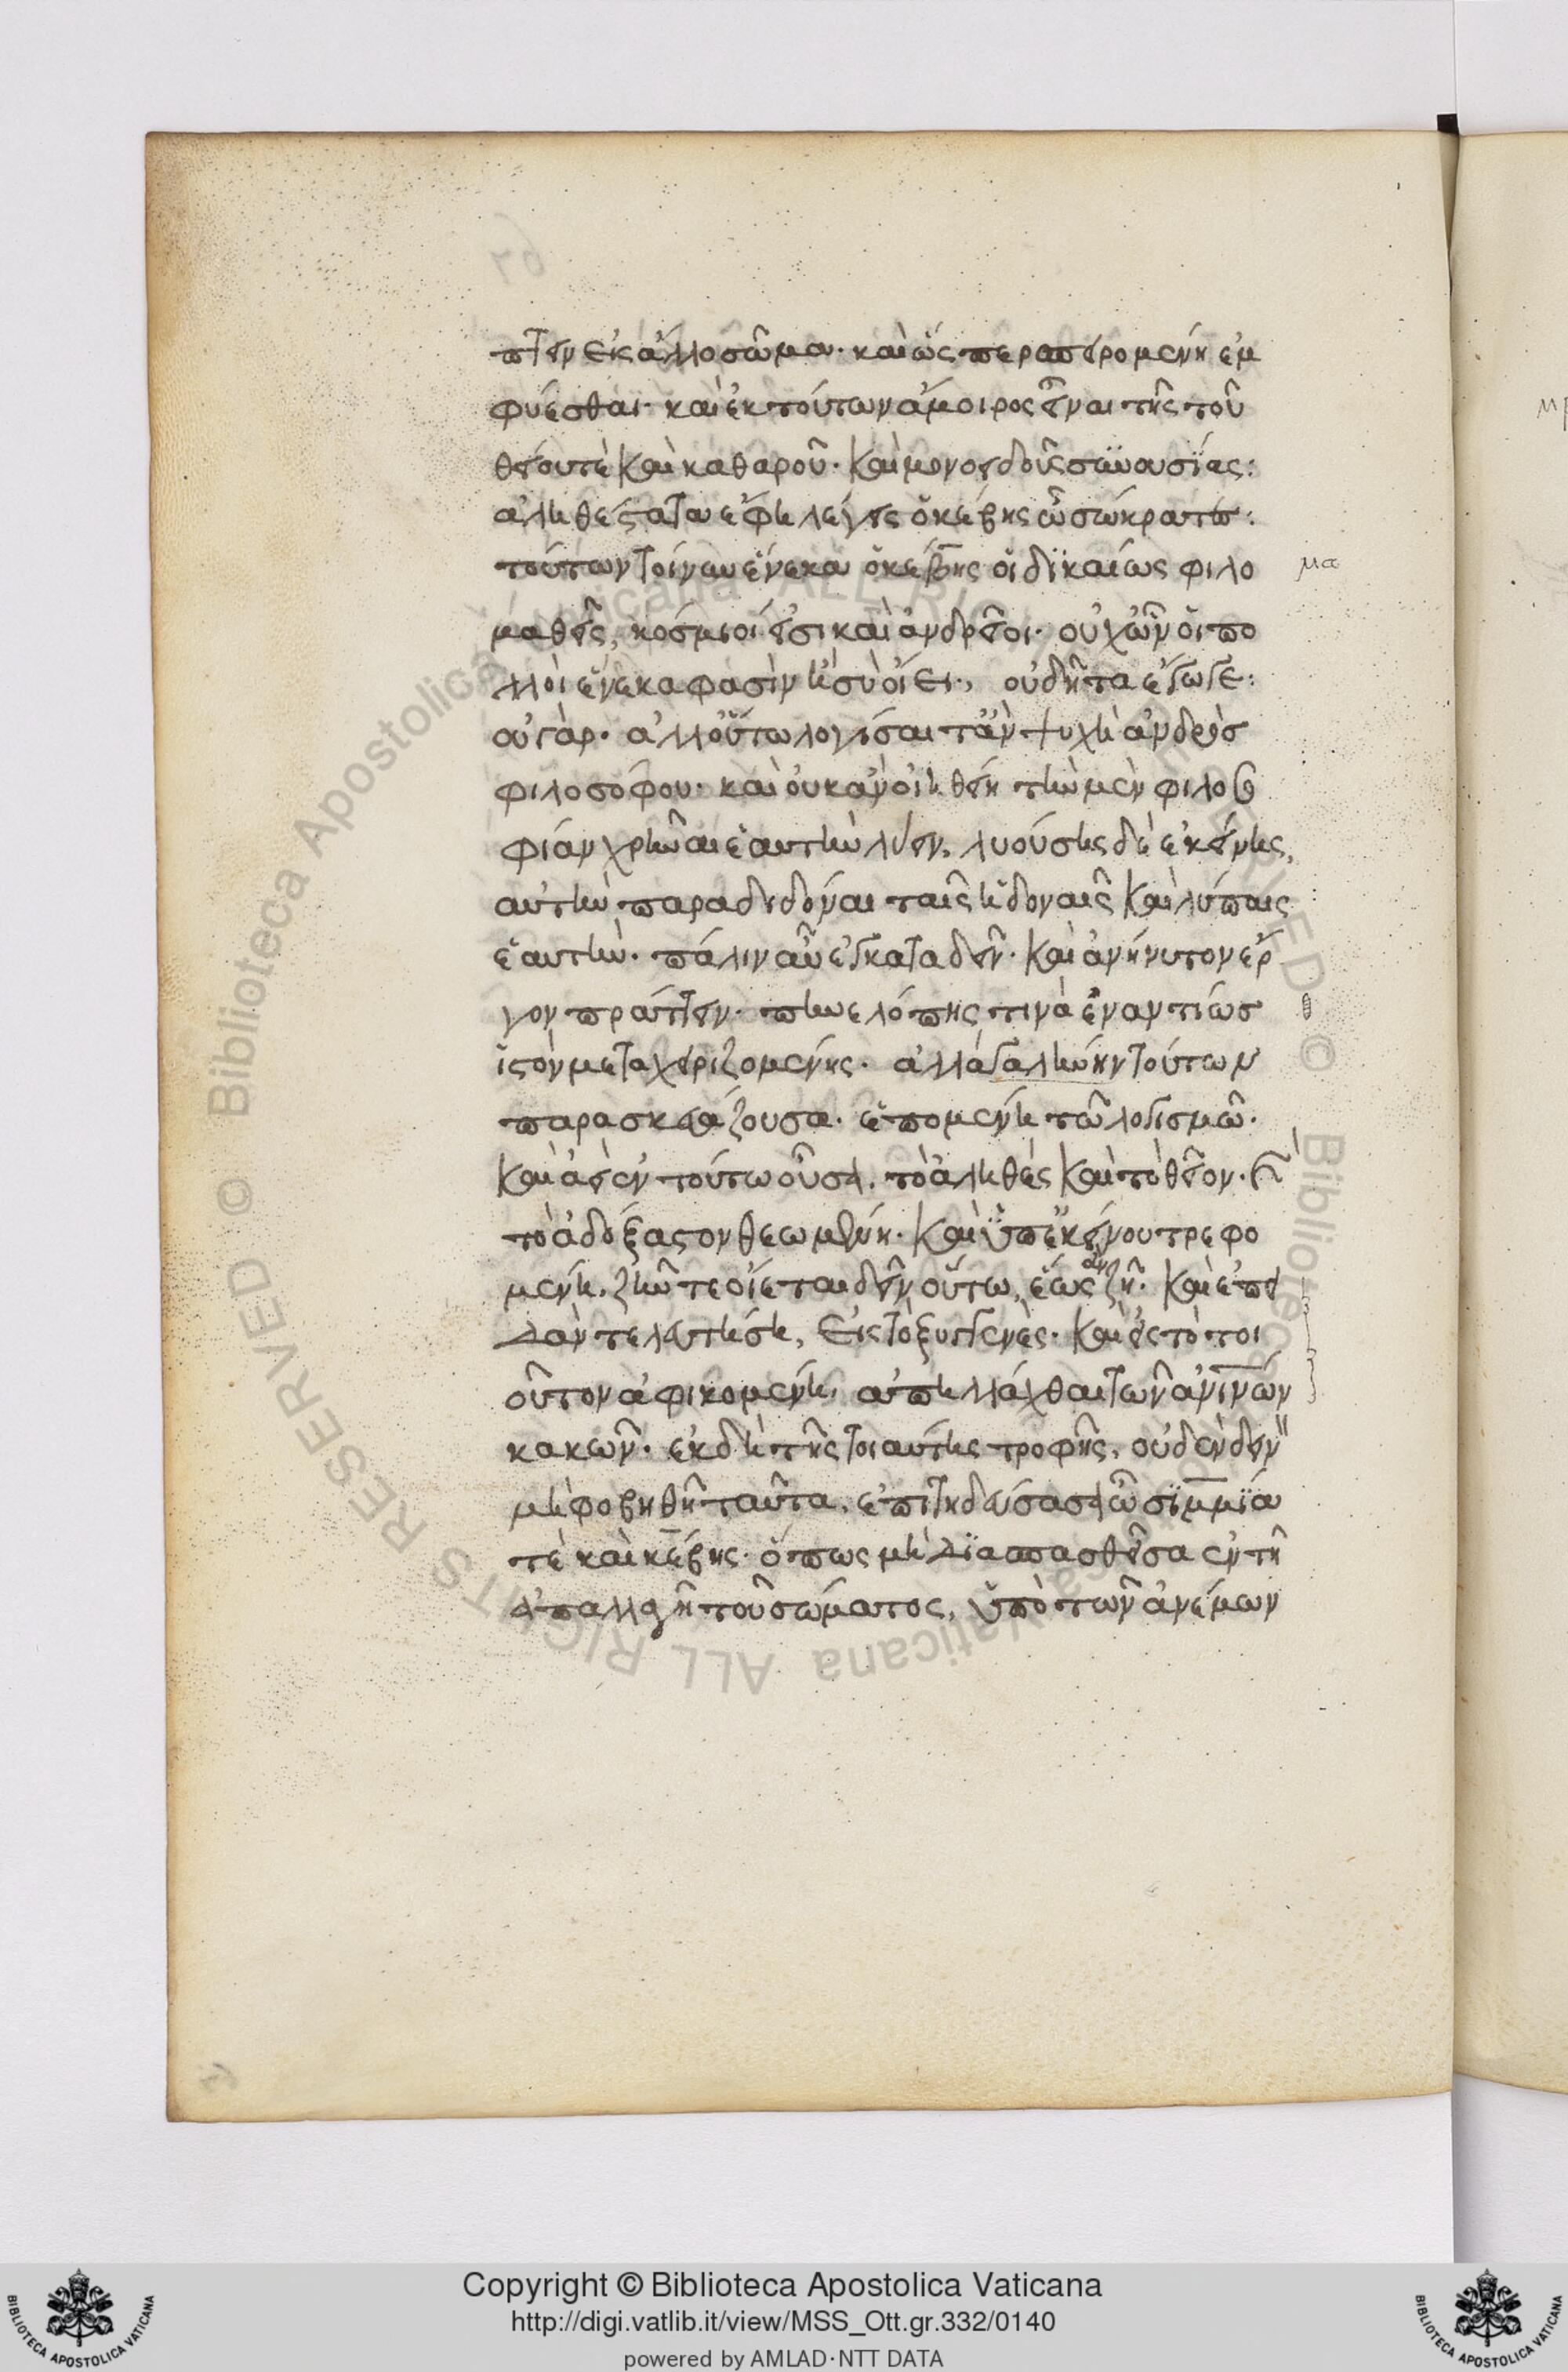 πτειν εἰς ἄλλο σῶμα· καὶ ὥσπερ σπειρομένη ἐμ
φύεσθαι· καὶ ἐκ τούτων ἄμοιρος εἶναι τῆς τοῦ
θείου τὲ καὶ καθαροῦ· καὶ μονοειδοῦς συνουσίας:
ἀληθέστατα ἔφη λέγεις ὁ κέβης ὦ σώκρατες:
τούτων τοίνυν ἕνεκα ὦ κέβης οἱ δικαίως φιλο
μαθεῖς, κόσμιοί εἰσι καὶ ἀνδρεῖοι· οὐχ ὧν οἱ πο
λλοὶ ἕνεκα φασὶν ἢ σὺ οἴει., οὐ δῆτα ἔγωγε:
οὐ γάρ· ἀλλ' οὕτω λογίσαιτ' ἂν ψυχὴ ἀνδρὸς
φιλοσόφου· καὶ οὐκ ἂν οἰηθείη τὴν μὲν φιλοσο
φίαν χρῆναι ἑαυτὴν λύειν, λυούσης δὲ ἐκείνης,
αὐτὴν παραδιδόναι ταῖς ἡδοναῖς καὶ λύπαις
ἑαυτὴν· πάλιν αὖ ἐγκαταδεῖν· καὶ ἀνήνυτον ἔρ
γον πράττειν· πηνελόπης τινὰ ἐναντίως
ἱστὸν μεταχειριζομένης· ἀλλὰ γαλήνην τούτων
παρασκευάζουσα· ἑπομένη τῶ λογισμῶ·
καὶ ἀεὶ ἐν τούτω οὖσα, τὸ ἀληθὲς καὶ τὸ θεῖον· καὶ
τὸ ἀδόξαστον θεωμένη· καὶ ὑπ' ἐκείνου τρεφο
μένη, ζῆν τε οἴεται δεῖν οὕτω, ἕως ἂν ζῆ· καὶ ἐπει
δὰν τελευτήση, εἰς τὸ ξυγγενὲς· καὶ εἰς τὸ τοι
οῦτον ἀφικομένη, ἀπηλλάχθαι τῶν ἀνινων
κακῶν· ἐκ δὴ τῆς τοιαύτης τροφῆς, οὐδὲν δεινὸν
μὴ φοβηθῆ ταῦτα, ἐπιτηδεύσασα ὦ σιμμία
τὲ καὶ κέβης· ὅπως μὴ διασπασθεῖσα ἐν τῆ
ἀπαλλαγῆ τοῦ σώματος, ὑπὸ τῶν ἀνέμων
μα
Copyright © Biblioteca Apostolica Vaticana
http://digi.vatlib.it/view/MSS_Ott.gr.332/0140
powered by AMLAD·NTT DATA